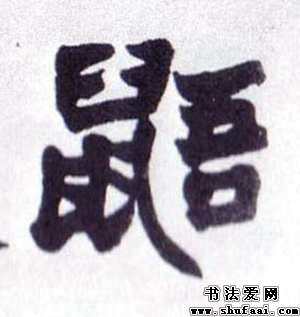 鼯
书法爱网
www.shufaai.com